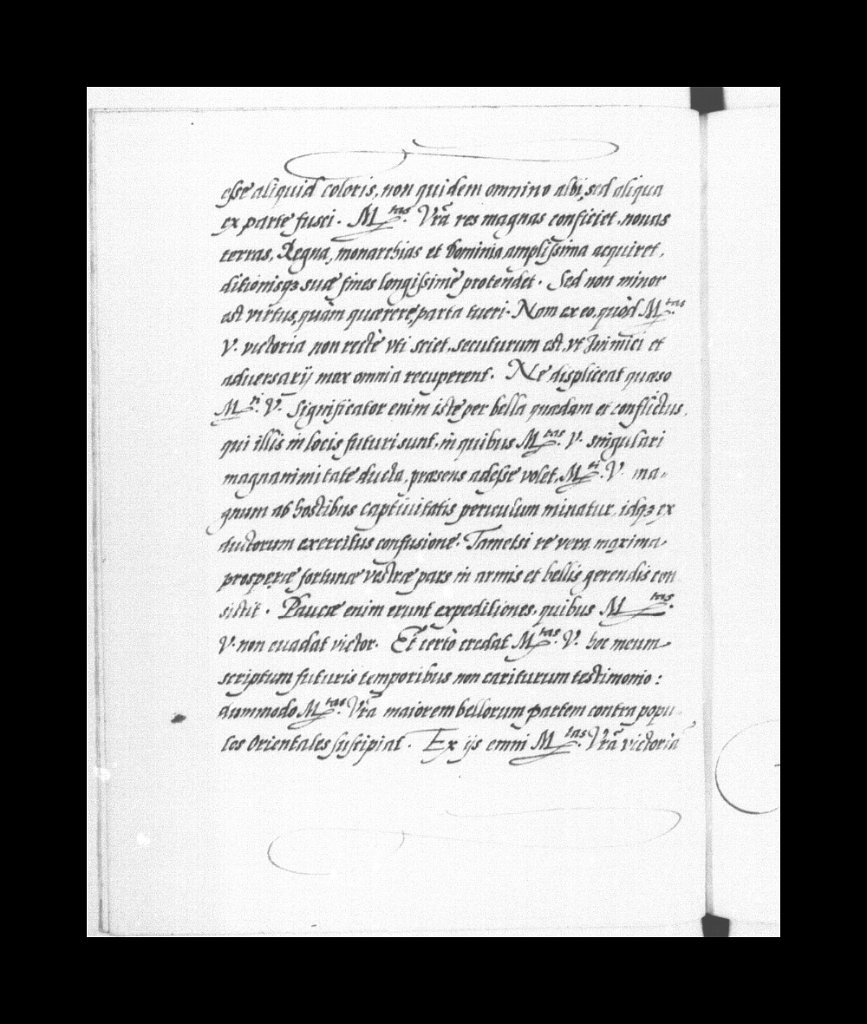 esse aliquid coloris, non quidem omnino albi, sed aliqua
ex parte fusci. M.tas Vrã res magnas conficiet, nouas
terras, Regna, monarchias et Dominia amplissima acquiret,
ditionisqꝫ suæ fines longissimè protendet. Sed non minor
est virtus, quàm quærere, parta tueri. Nam ex eo, quòd M.tas
V. victoria non rectè vti sciet, secuturum est, vt Inimici et
aduersarij mox omnia recuperent. Ne displiceat quæso
M.ti V. Significator enim iste per bella quædam et conflictus,
qui illis in locis futuri sunt, in quibus M.tas V. singulari
magnanimitate ducta, præsens adesse volet, M.ti V. ma-
gnum ab hostibus captiuitatis periculum minatur, idqꝫ ex
ductorum exercitus confusione. Tametsi re vera maxima
prosperæ fortunæ vestræ pars in armis et bellis gerendis con
sistit. Paucæ enim erunt expeditiones, quibus M.tas
V. non euadat victor. Et certò credat M.tas V. hoc meum
scriptum futuris temporibus non cariturum testimonio:
dummodo M.tas Vrã maiorem bellorum partem contra popu-
los Orientales suscipiat. Ex ijs enim M.tas Vrã victoria